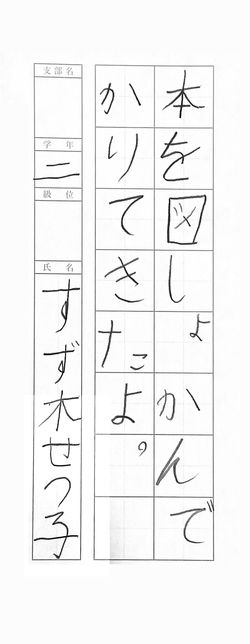 本を図しょかんで
かりてきたよ。
支部名
学年
二
級位
氏名
すず木せつ子